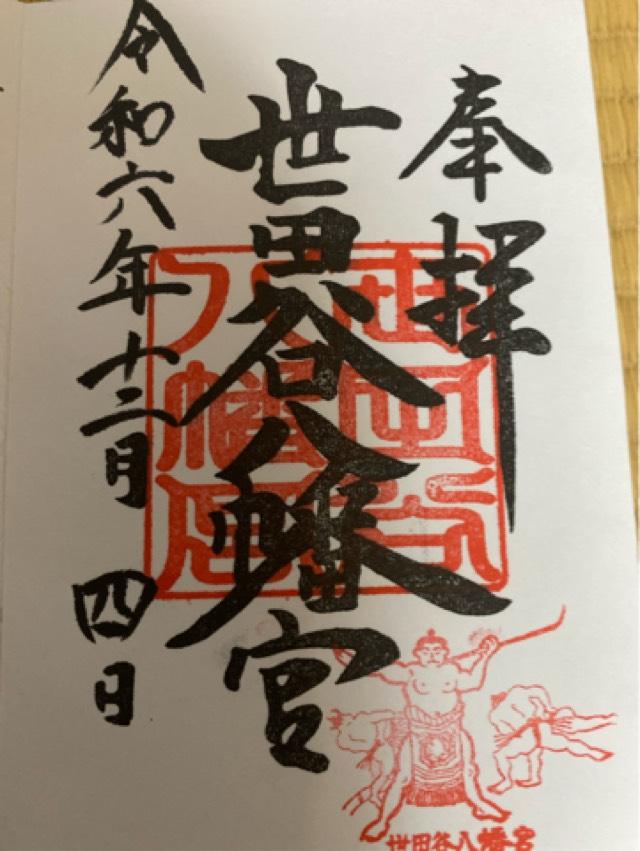 奉拝
世田谷八幡宮
令和六年十二月四日
世田谷八幡宮
世田谷八幡宮